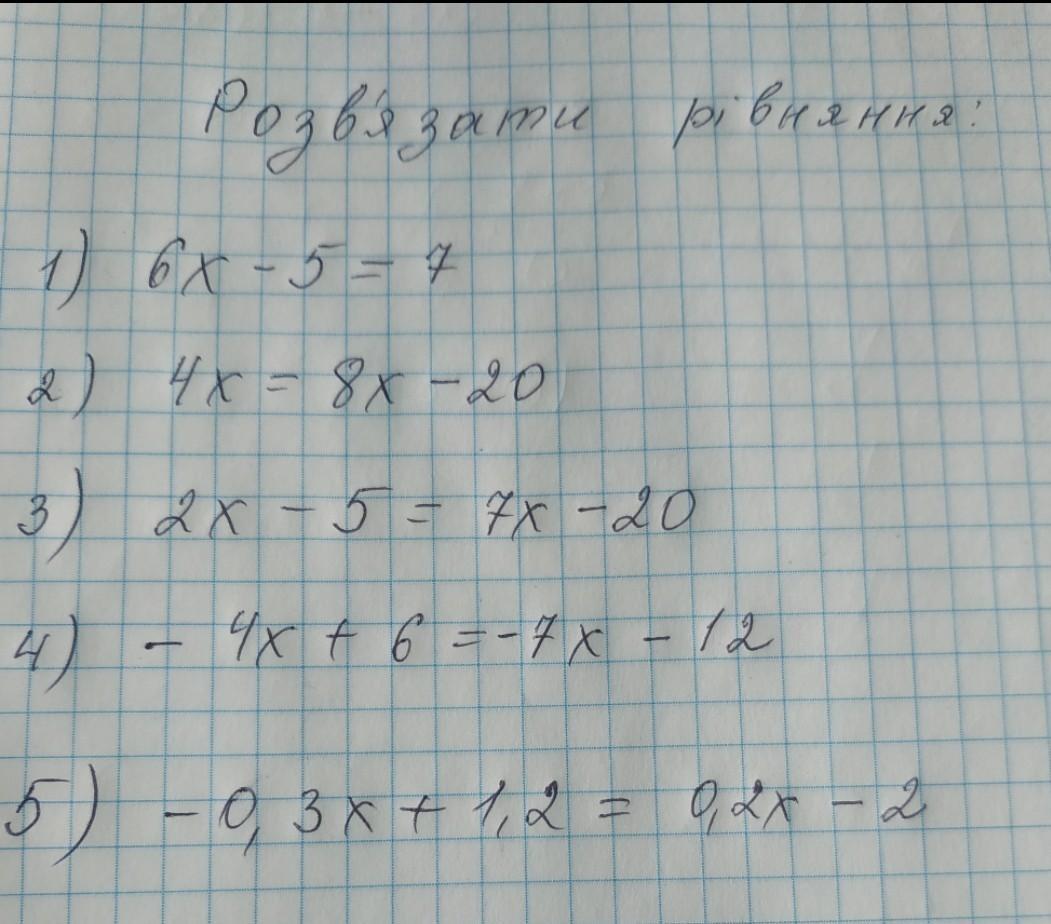 Розв'язати рівняння:
1) 6x - 5 = 7
2) 4x = 8x - 20
3) 2x - 5 = 7x - 20
4) - 4x + 6 = -7x - 12
5) - 0,3x + 1,2 = 0,2x - 2